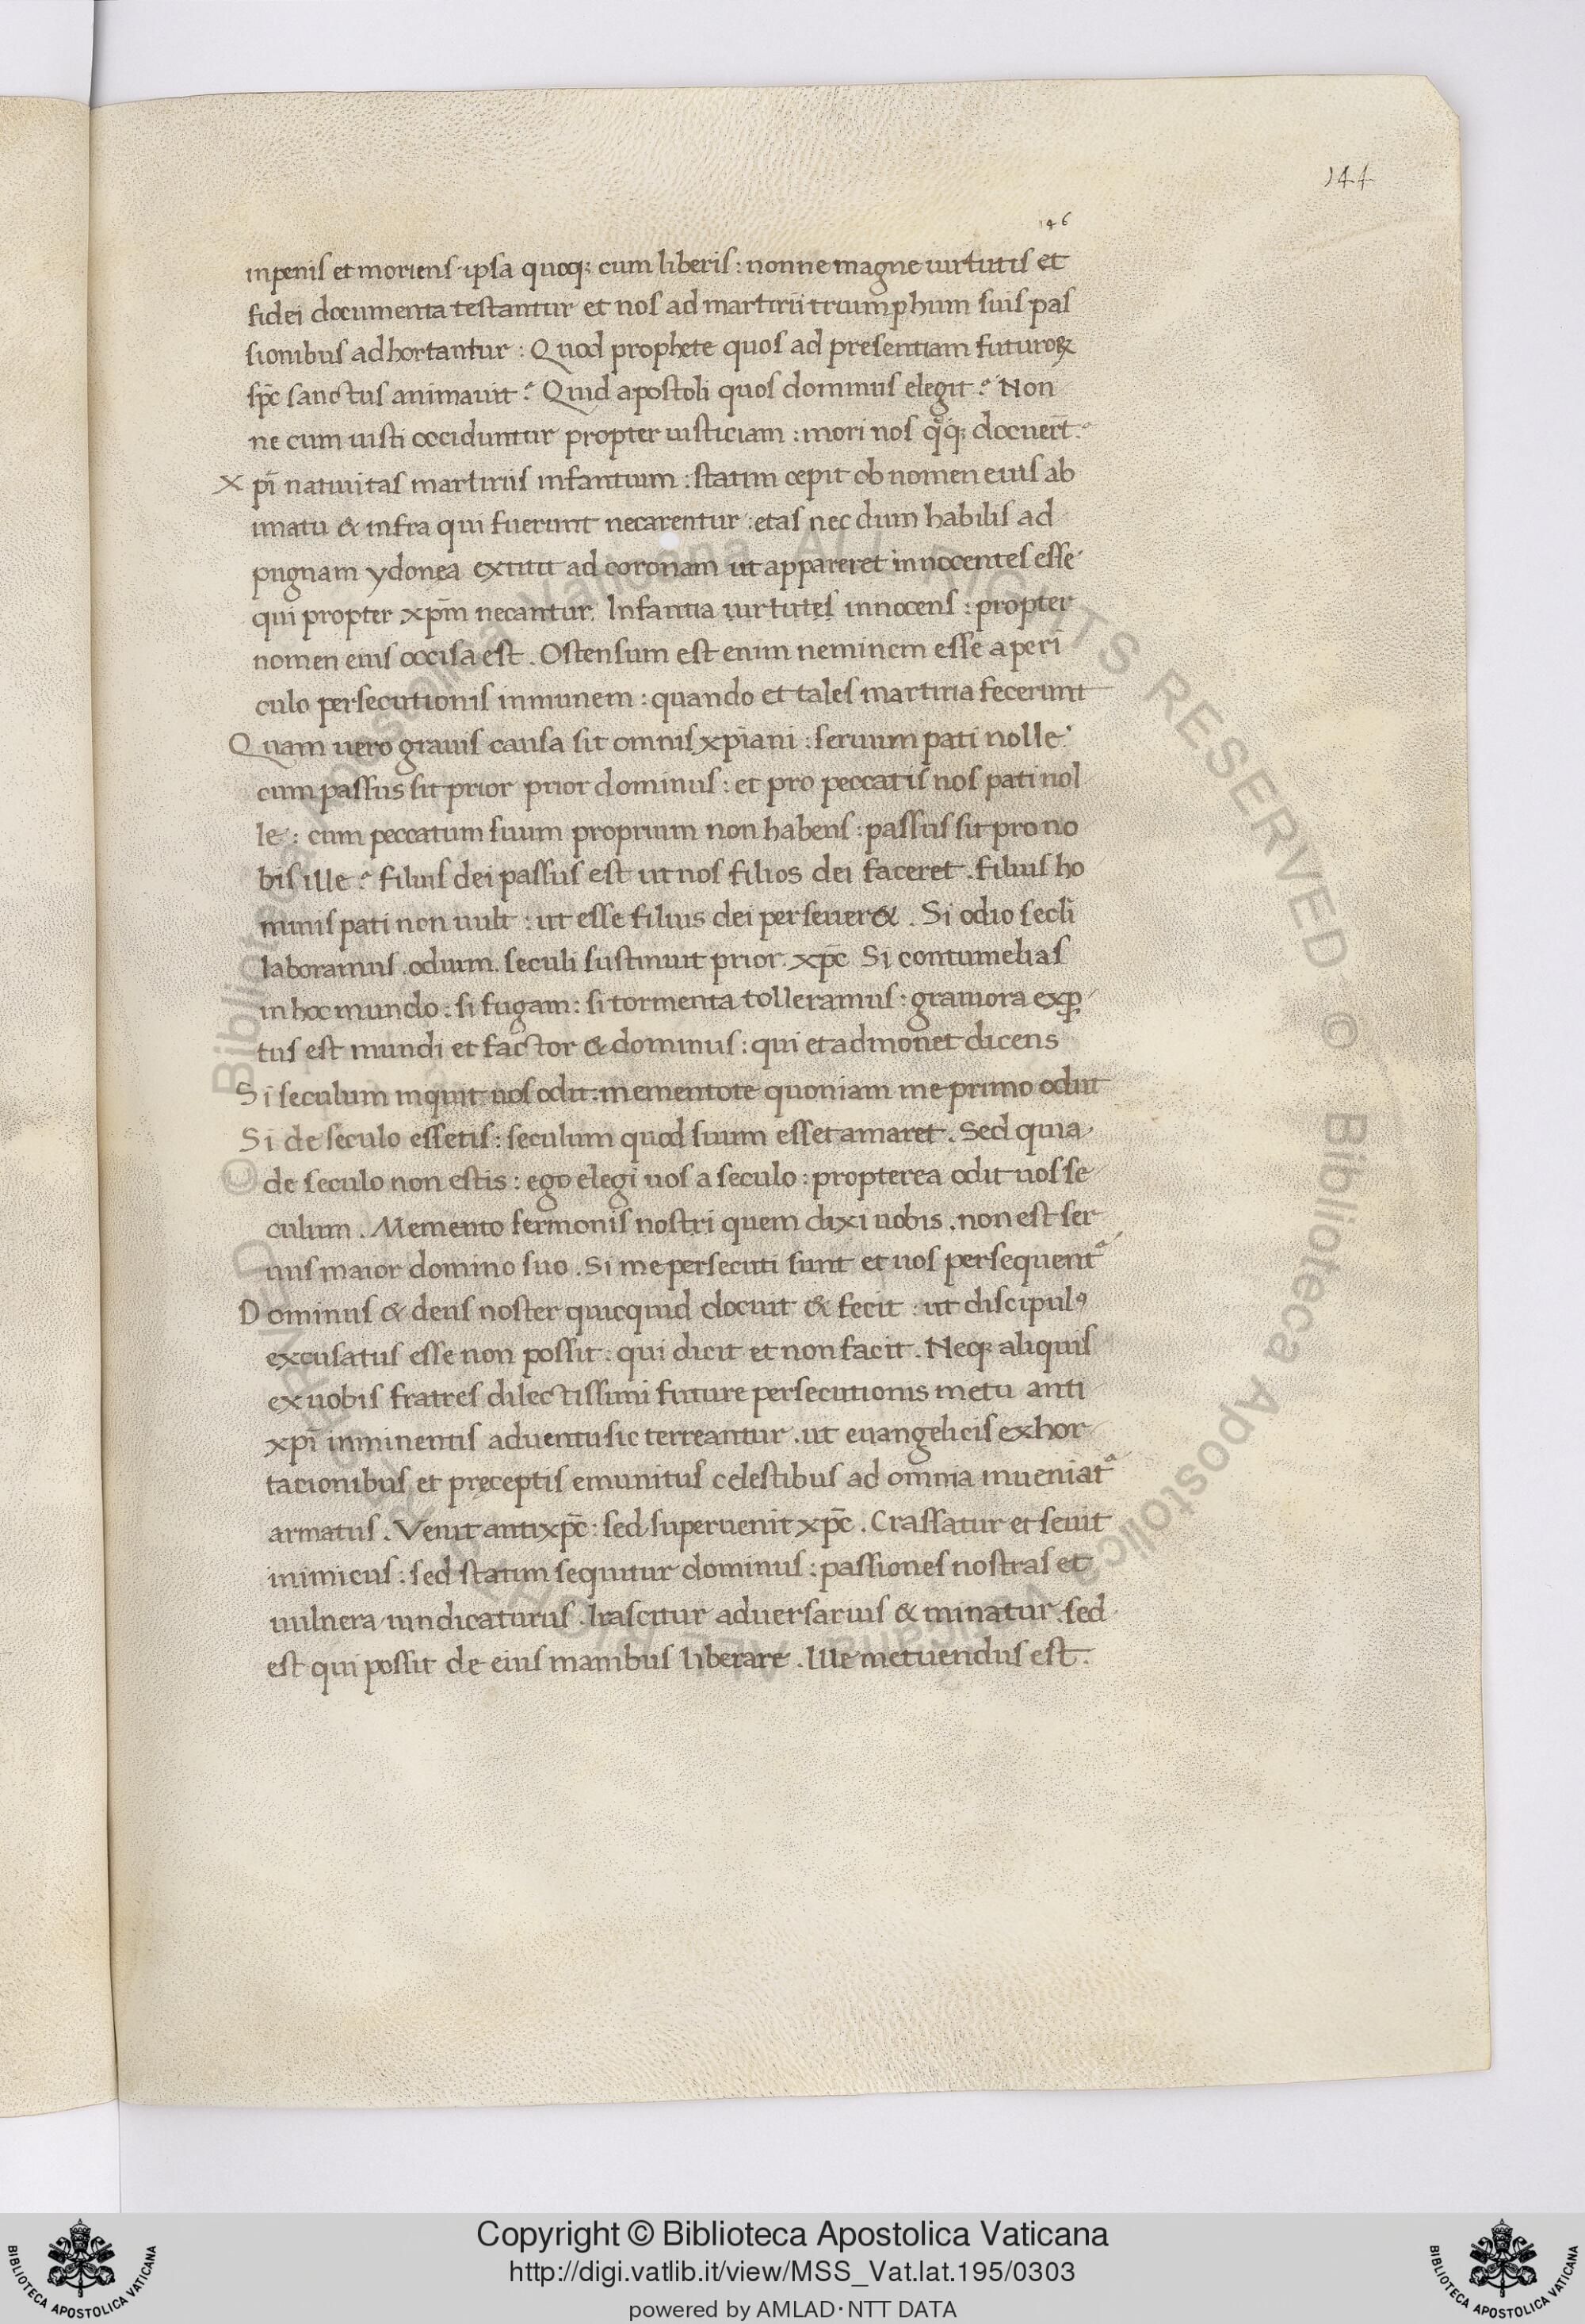 144
146
inpenis et moriens ipsa quoq; cum liberis : nonne magne uirtutis et
fidei documenta testantur et nos ad martirii triumphum suis pas
sionibus adhortantur : Quod prophete quos ad presentiam futuroꝝ
sp̄c sanctus animauit ? Quid apostoli quos dominus elegit ? Non
ne cum iusti occiduntur propter iusticiam : mori nos q̊q; docuer̄t .
Xp̄i natiuitas martiriis infantium : statim cepit ob nomen eius ab
imatu & infra qui fuerunt necarentur : etas nec dum habilis ad
pugnam ydonea extitit ad coronam ut appareret innocentes esse
qui propter xp̄m necantur. Infantia uirtutes innocens : propter
nomen eius occisa est . Ostensum est enim neminem esse a peri
culo persecutionis inmunem : quando et tales martiria fecerunt
Quam uero grauis causa sit omnis xp̄iani : seruum pati nolle
cum passus sit prior prior dominus : et pro peccatis nos pati nol
le : cum peccatum suum proprium non habens : passus sit pro no
bis ille ? filius dei passus est ut nos filios dei faceret . filius ho
minis pati non uult : ut esse filius dei perseuer& . Si odio secl̄i
laboramus . odium . seculi sustinuit prior . xp̄c Si contumelias
in hoc mundo : si fugam : si tormenta tolleramus : grauiora exp̱
tus est mundi et factor & dominus : qui et admonet dicens
Si seculum inquit uos odit . mementote quoniam me primo odiit
Si de seculo essetis : seculum quod suum esset amaret . Sed quia
de seculo non estis : ego elegi uos a seculo : propterea odit uos se
culum . Memento sermonis nostri quem dixi uobis . non est ser
uus maior domino suo . Si me persecuti sunt et uos persequent᷑
Dominus & deus noster quicquid docuit & fecit : ut discipulꝰ
excusatus esse non possit : qui dicit et non facit . Neq; aliquis
ex uobis fratres dilectissimi future persecutionis metu anti
xp̄i inminentis aduentu sic terreantur . ut euangelicis exhor
tacionibus et pręceptis emunitus celestibus ad omnia inueniat᷑
armatus . Venit antixp̄c : sed superuenit xp̄c . Crassatur et seuit
inimicus : sed statim sequitur dominus : passiones nostras et
uulnera uindicaturus . Irascitur aduersarius & minatur . sed
est qui possit de eius manibus liberare . Ille metuendus est .
© Biblioteca Apostolica Vaticana ALL RIGHTS RESERVED © Biblioteca Apostolica Vaticana ALL RIGHTS RESERVED
Copyright © Biblioteca Apostolica Vaticana
http://digi.vatlib.it/view/MSS_Vat.lat.195/0303
powered by AMLAD·NTT DATA
BIBLIOTECA APOSTOLICA VATICANA
BIBLIOTECA APOSTOLICA VATICANA